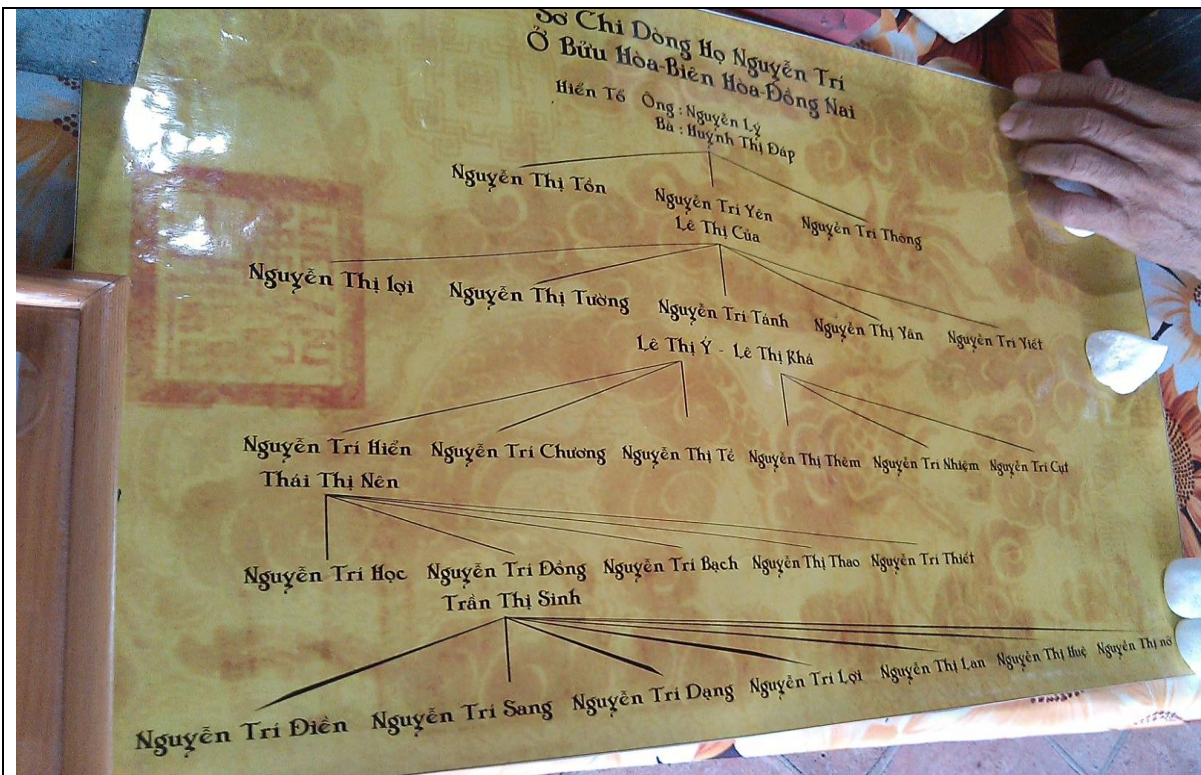 Sơ Chi Dòng Họ Nguyễn Trí
Ở Bửu Hòa-Biên Hòa-Đồng Nai
Hiển Tổ Ông : Nguyễn Lý
Bà : Huỳnh Thị Đáp
Nguyễn Thị Tồn Nguyễn Trí Yên Nguyễn Trí Thông
Lê Thị Của
Nguyễn Thị lợi Nguyễn Thị Tường Nguyễn Trí Tánh Nguyễn Thị Yân Nguyễn Trí Yiết
Lê Thị Ý - Lê Thị Khá
Nguyễn Trí Hiển Nguyễn Trí Chương Nguyễn Thị Tề Nguyễn Thị Thêm Nguyễn Trí Nhiệm Nguyễn Trí Cụt
Thái Thị Nên
Nguyễn Trí Học Nguyễn Trí Đồng Nguyễn Trí Bạch Nguyễn Thị Thao Nguyễn Trí Thiết
Trần Thị Sinh
Nguyễn Trí Điền Nguyễn Trí Sang Nguyễn Trí Dạng Nguyễn Trí Lợi Nguyễn Thị Lan Nguyễn Thị Huệ Nguyễn Thị nở